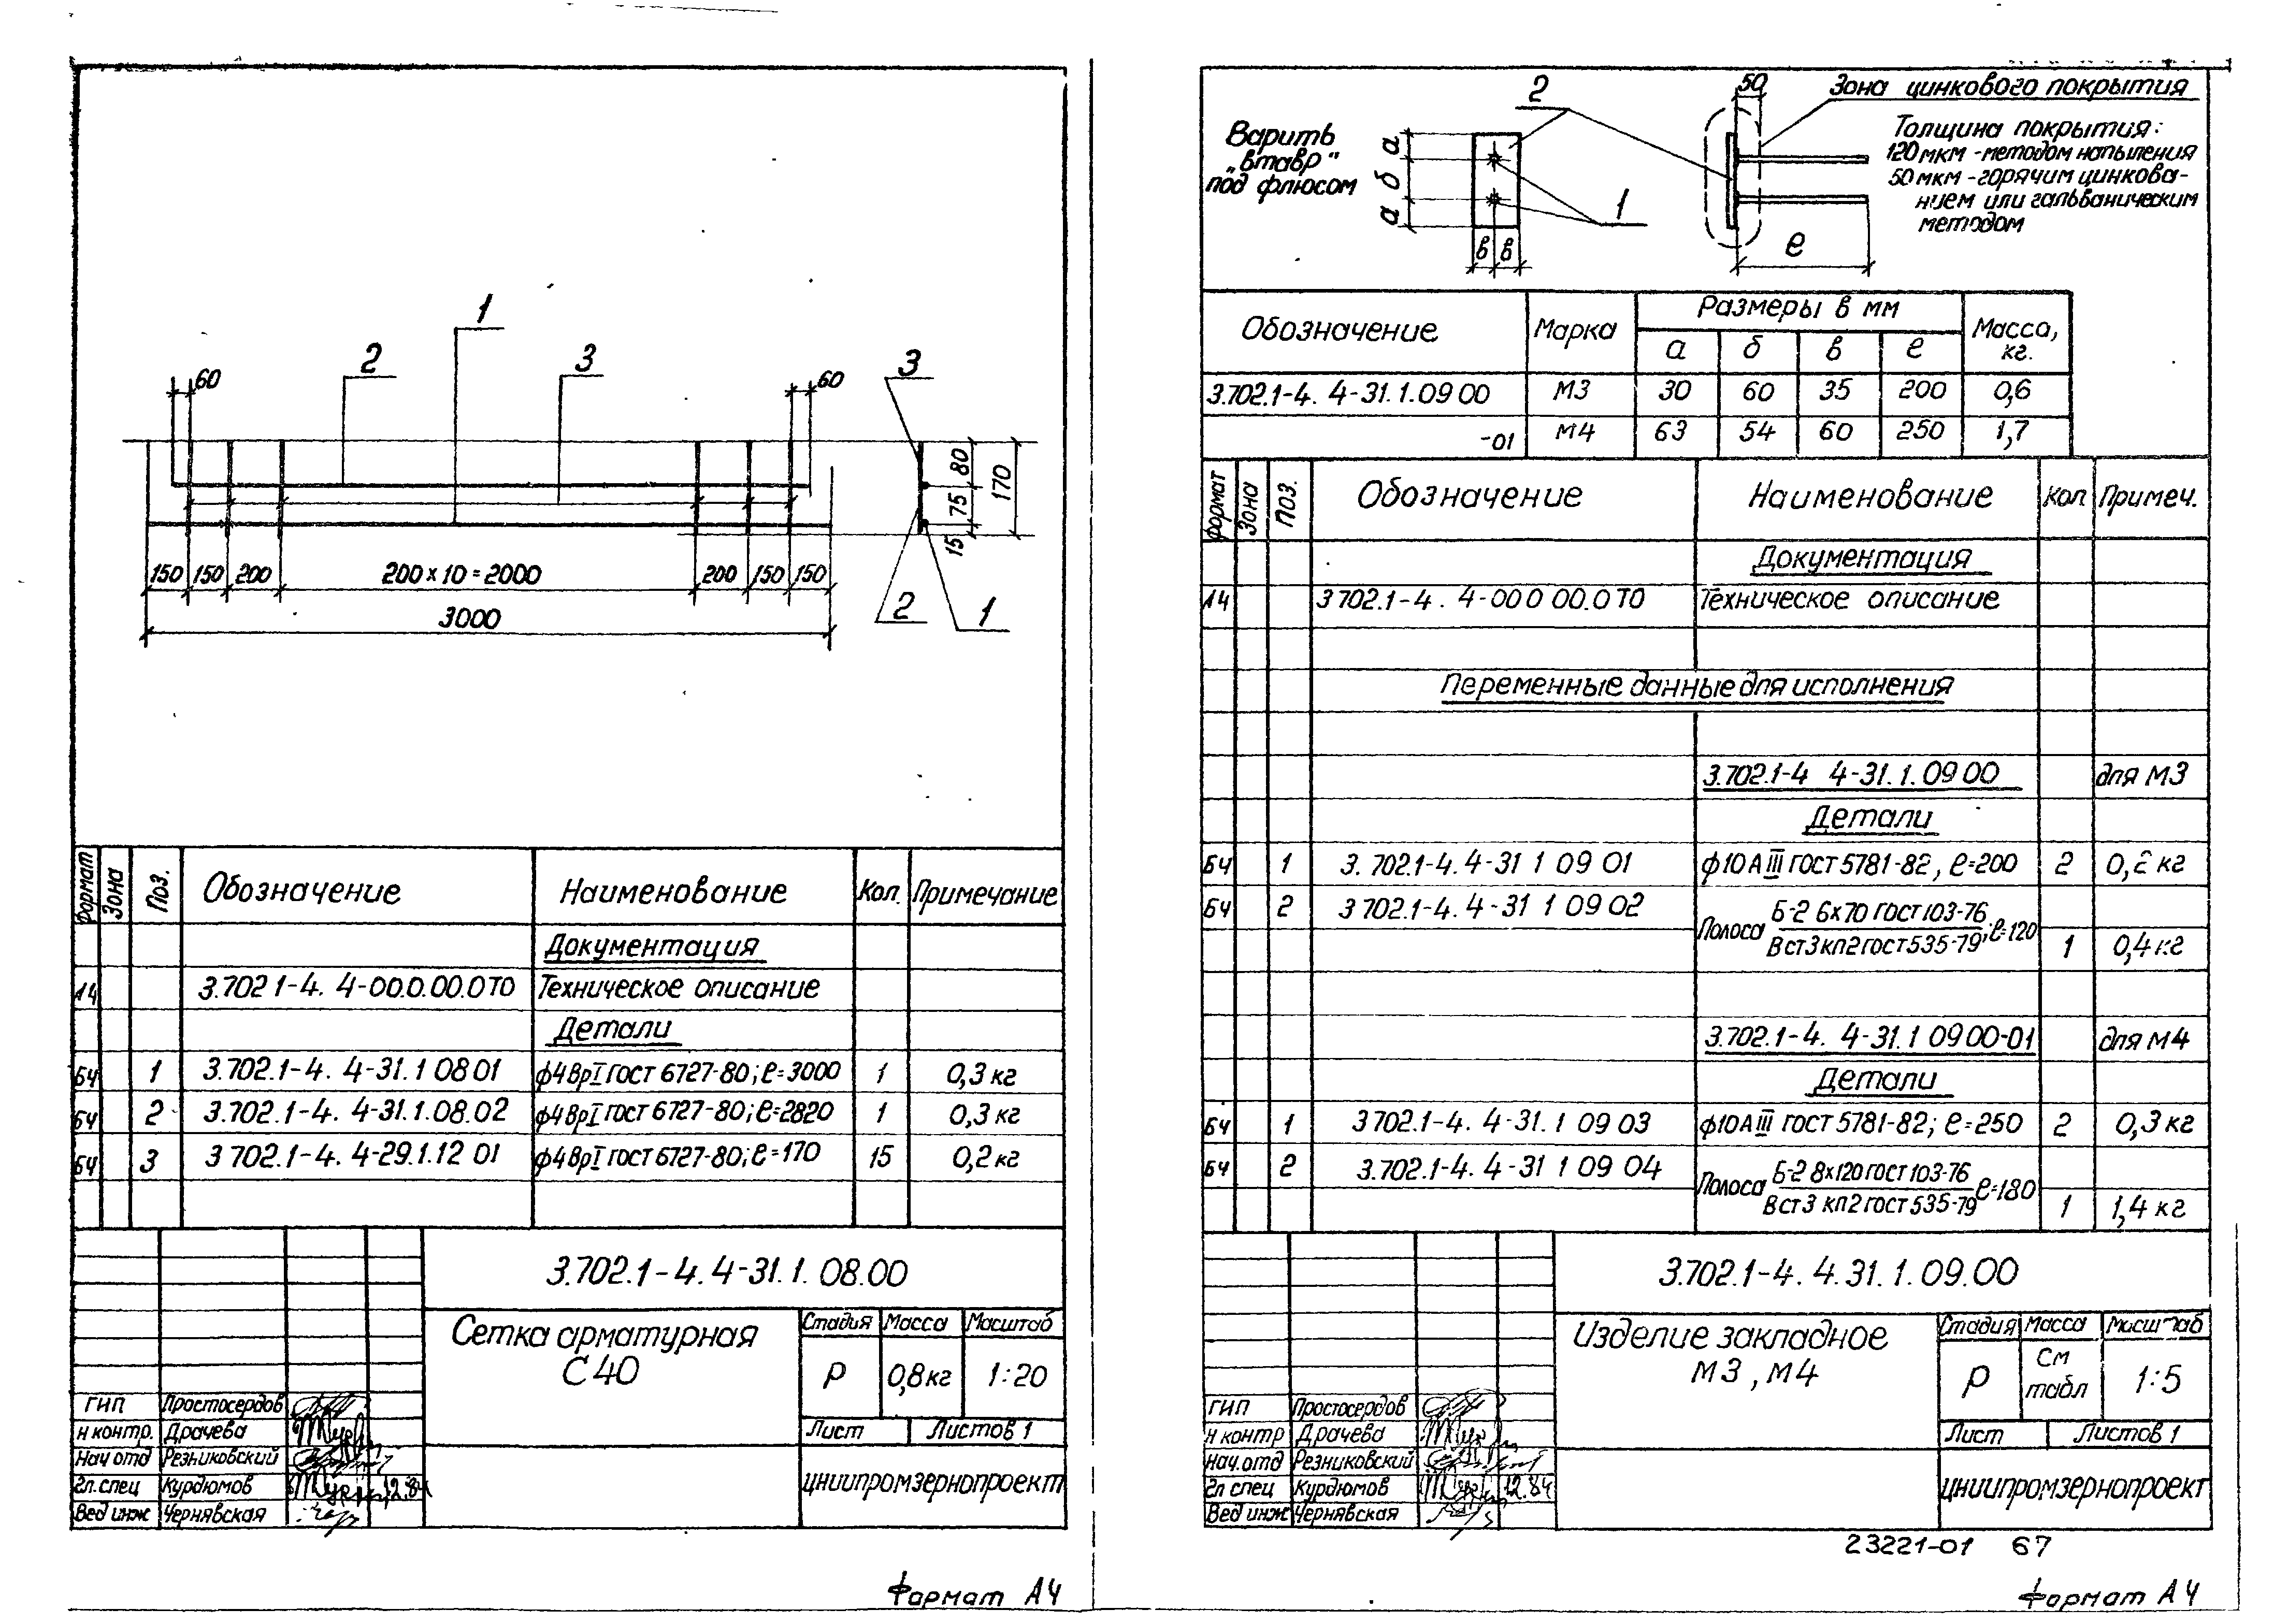 1
2
3
3
60
60
80
75
15
170
150
150
200
200 x 10 = 2000
200
150
150
3000
2
1
Формат
Зона
Поз.
Обозначение
Наименование
Кол.
Примечание
Документация
А4 3.702 1-4. 4-00.0.00.0ТО Техническое описание
Детали
БЧ 1 3.702.1-4. 4-31.1 08 01 ф4ВрI ГОСТ 6727-80; ℓ=3000 1 0,3 кг
БЧ 2 3.702.1-4. 4-31.1.08.02 ф4ВрI ГОСТ 6727-80; ℓ=2820 1 0,3 кг
БЧ 3 3 702.1-4. 4-29.1.12 01 ф4ВрI ГОСТ 6727-80; ℓ=170 15 0,2 кг
3.702.1-4. 4-31. 1. 08.00
Сетка арматурная
С 40
Стадия Масса Масштаб
Р 0,8 кг 1:20
Лист Листов 1
ЦНИИПРОМЗЕРНОПРОЕКТ
ГИП Простосердов
Н контр. Драчева
Нач отд Резниковский
Гл. спец Курдюмов 12.84
Вед инж Чернявская
Формат А4
Варить
"втавр"
под флюсом
а
б
а
в
в
2
1
50
е
Зона цинкового покрытия
Толщина покрытия:
120 мкм - методом напыления
50 мкм - горячим цинкова-
нием или гальваническим
методом
Обозначение Марка Размеры в мм Масса, кг.
а б в е
3.702.1-4. 4-31. 1.09 00 М3 30 60 35 200 0,6
-01 М4 63 54 60 250 1,7
Формат
Зона
Поз.
Обозначение
Наименование
Кол
Примеч.
Документация
А4 3 702.1-4. 4-00 0 00.0 ТО Техническое описание
Переменные данные для исполнения
3.702.1-4 4-31. 1. 09 00 для М3
Детали
БЧ 1 3. 702.1-4. 4-31 1 09 01 ф10 АIII ГОСТ 5781-82, ℓ=200 2 0,2 кг
БЧ 2 3 702.1-4. 4-31 1 09 02 Полоса Б-2 6х70 ГОСТ 103-76
В Ст3 кп2 ГОСТ 535-79, ℓ=120 1 0,4 кг
3.702.1-4. 4-31. 1 09 00-01 для М4
Детали
БЧ 1 3 702.1-4. 4-31. 1 09 03 ф10 АIII ГОСТ 5781-82; ℓ=250 2 0,3 кг
БЧ 2 3.702.1-4. 4-31 1 09 04 Полоса Б-2 8х120 ГОСТ 103-76
В Ст3 кп2 ГОСТ 535-79 ℓ=180 1 1,4 кг
3.702.1-4. 4.31. 1. 09.00
Изделие закладное
М3, М4
Стадия Масса Масштаб
Р См табл 1:5
Лист Листов 1
ЦНИИПРОМЗЕРНОПРОЕКТ
ГИП Простосердов
Н контр Драчева
Нач. отд Резниковский
Гл спец Курдюмов 12.84
Вед инж Чернявская
23221-01 67
Формат А4